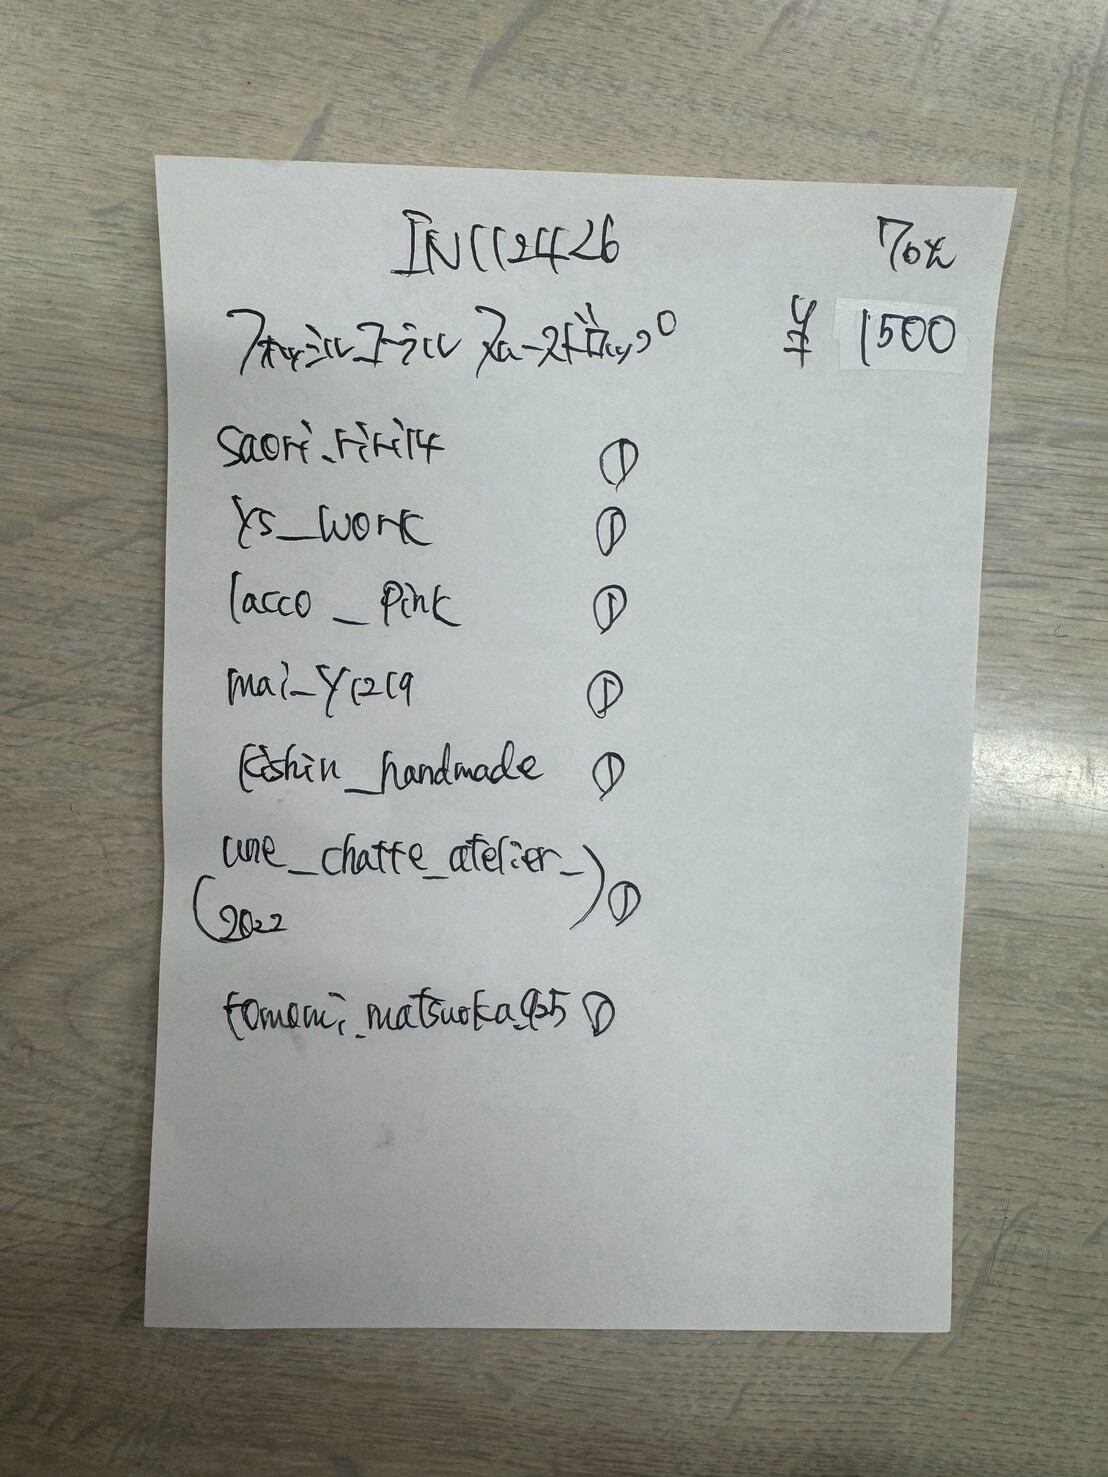 IN112426 70%
フォッシルコーラル フェースドロップ ¥ 1500
saori_riri14 ①
ys_work ①
lacco_pink ①
mai_y1219 ①
kishin_handmade ①
(une_chatte_atelier_) ①
2022
tomomi_matsuoka925 ①